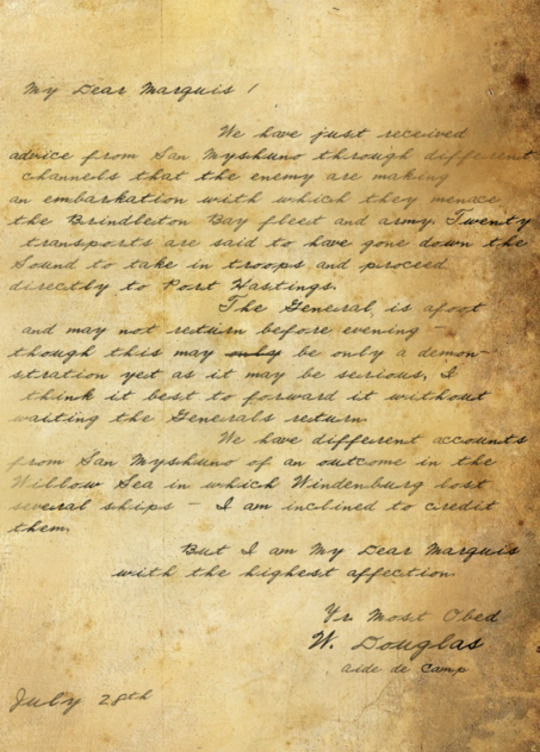 My Dear Marquis !
We have just received
advice from San Myshuno through different
channels that the enemy are making
an embarkation with which they menace
the Brindleton Bay fleet and army. Twenty
transports are said to have gone down the
Sound to take in troops and proceed
directly to Port Hastings.
The General is afoot
and may not return before evening –
though this may only be only a demon-
stration yet as it may be serious, I
think it best to forward it without
waiting the Generals return.
We have different accounts
from San Myshuno of an outcome in the
Willow Sea in which Windenburg lost
several ships – I am inclined to credit
them.
But I am My Dear Marquis
with the highest affection
Yr. Most Obed
W. Douglas
aide de Camp
July 28th